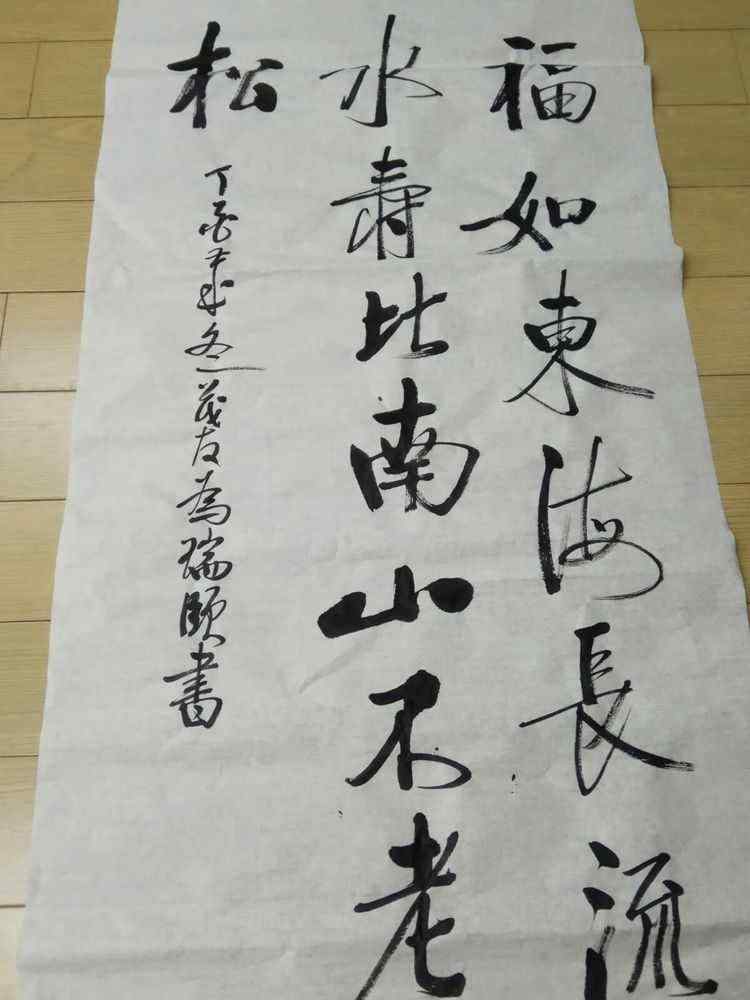 福如東海長流
水壽比南山不老
松
丁酉年冬茂友為瑞頤書